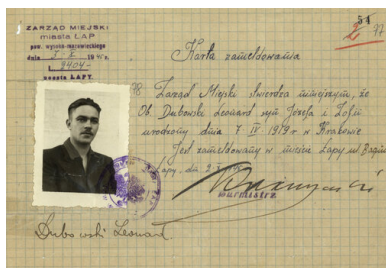 ZARZĄD MIEJSKI
miasta ŁAP
pow. wysoko-mazowieckiego
dnia
9404
poczta ŁAPY.
54
2 97
Karta zameldowania
Zarząd Miejski stwierdza niniejszym, że
Ob. Dubowski Leonard syn Józefa i Zofii
urodzony dnia 7 IV 1919 r. w Krakowie
Jest zameldowany w mieście Łapy ul.
Łapy, dnia
Burmistrz
Dubowski Leonard.